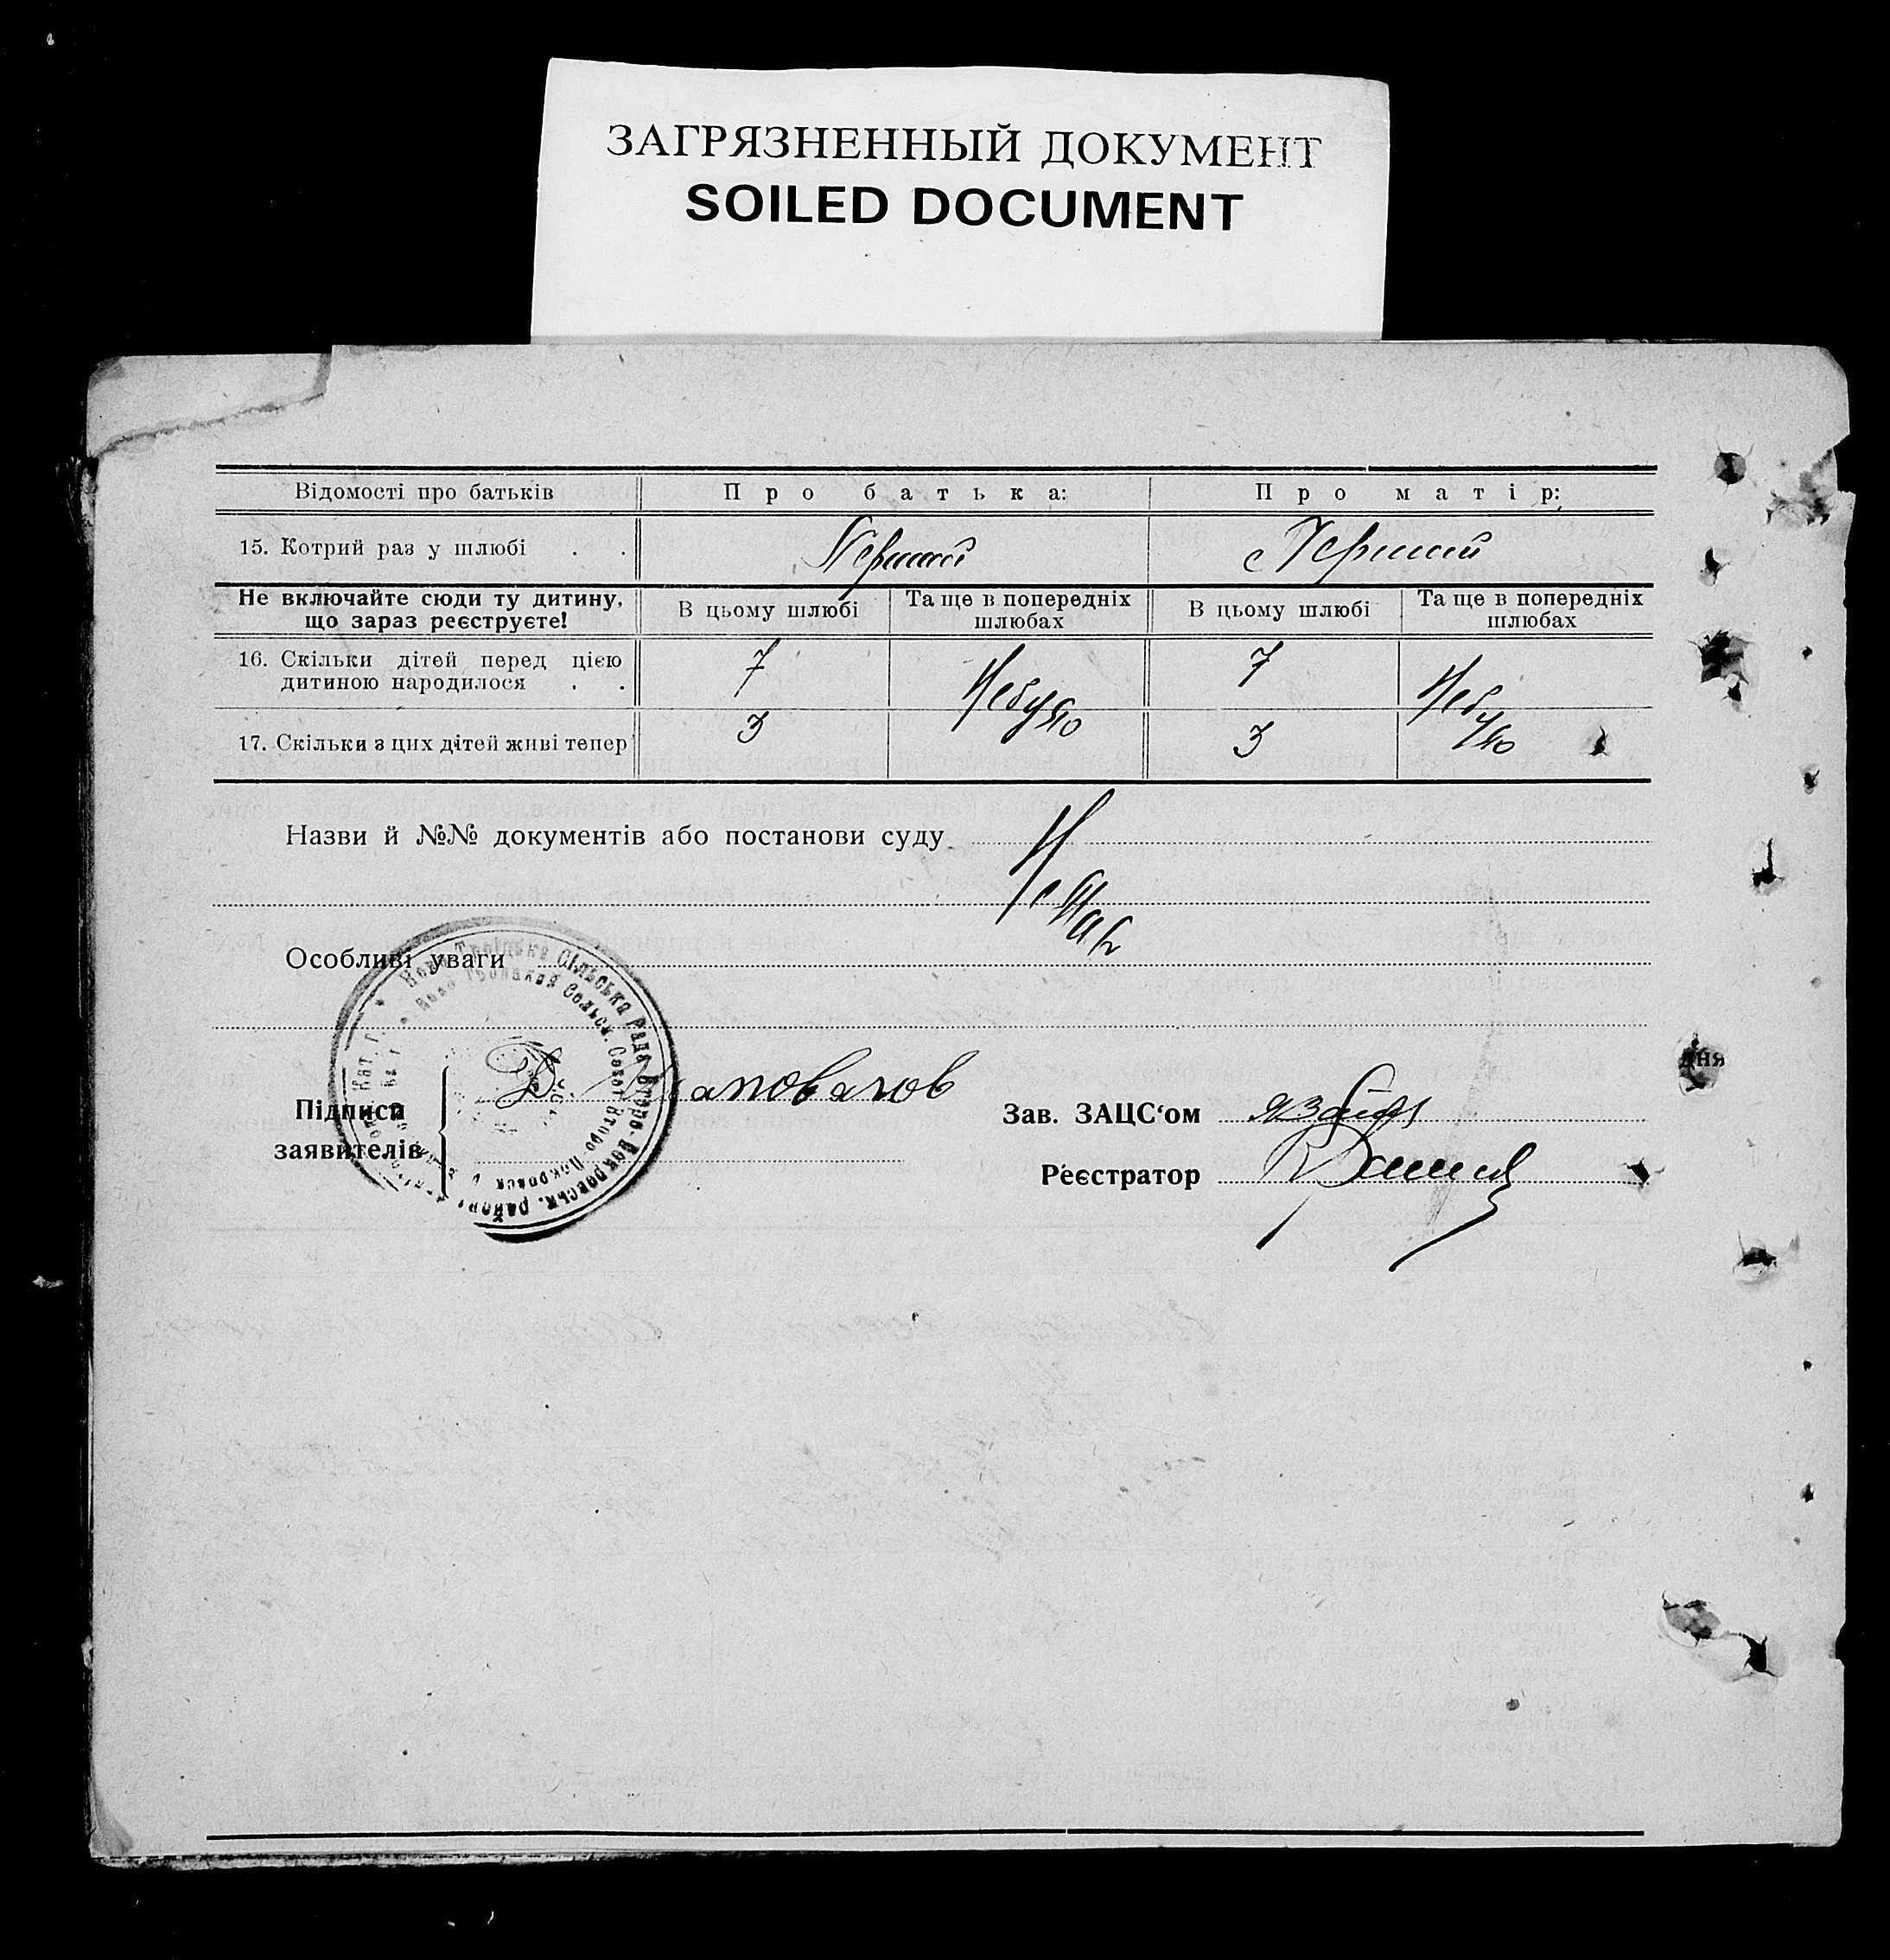 ЗАГРЯЗНЕННЫЙ ДОКУМЕНТ
SOILED DOCUMENT
Відомості про батьків Про батька: Про матір:
15. Котрий раз у шлюбі . . Перший Перший
Не включайте сюди ту дитину, що зараз реєструєте! В цьому шлюбі Та ще в попередніх шлюбах В цьому шлюбі Та ще в попередніх шлюбах
16. Скільки дітей перед цією дитиною народилося . . 7 Небуло 7 Небуло
17. Скільки з цих дітей живі тепер 3 3
Назви й №№ документів або постанови суду
Немає
Особливі уваги
Ново Троїцька Сільська Рада Второ-Покровськ. району
Ново Троицкая Сельск. Совет Второ Покровск
дня
Підписи заявителів Д. Шаповалов
Зав. ЗАЦС'ом
Реєстратор